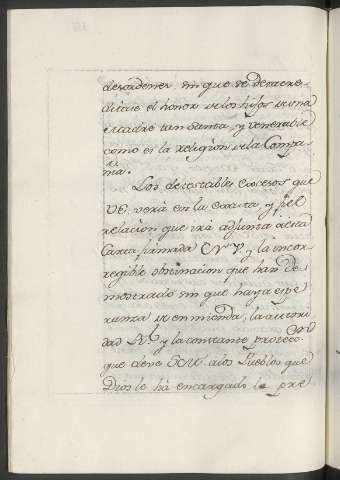 desordenes sin que se desacre-
ditase el honor de los hijos de una
Madre tan Santa, y venerable
como es la religion de la Compa-
ñia.
Los detestables excesos que
VE. verá en la exacta, y fiel
relacion que irá adjunta á esta
Carta firmada y la incor-
regible obstinacion que han de-
mostrado sin que haya espe-
ranza de enmienda, la autori-
dad Rl. y la constante protecc.on
que deve SM a los Pueblos que
Dios le há encargado le pre